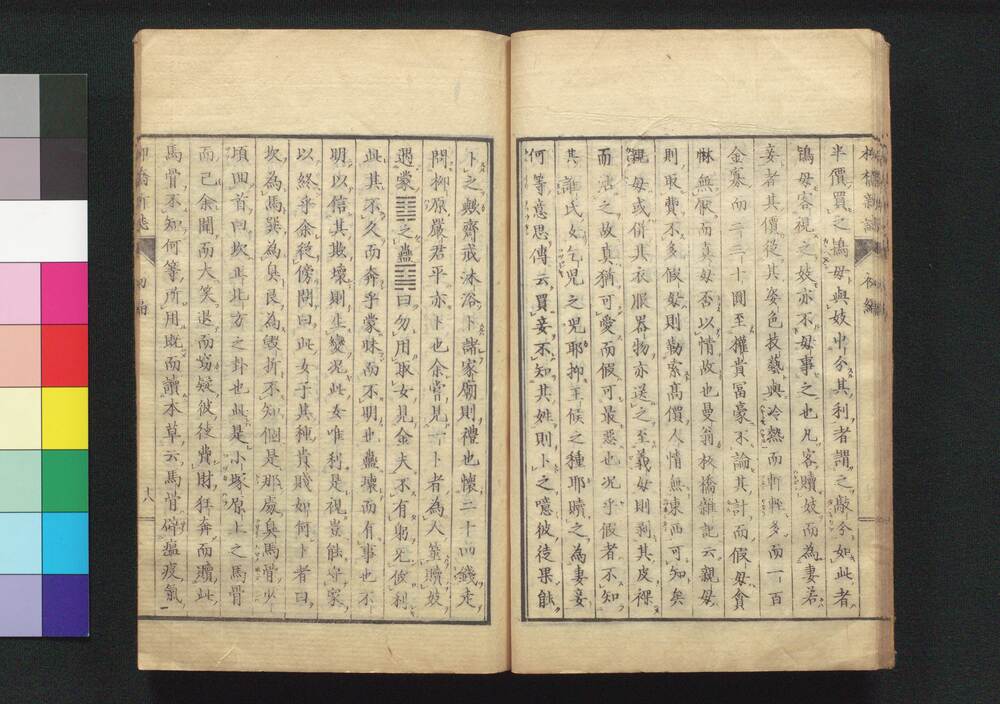 柳橋新誌 初編
半價買之鴇母與妓中分其利者謂之敲分如此者
鴇母客視之妓亦不母事之也凡客贖妓而為妻若
妾者其價從其姿色技藝與冷熱而軒輊多而一百
金寡而二三十圓至權貴冨豪不論其計而假母貪
惏無假而真母否以情故也曼翁板橋雜記云親母
則取費不多假母則勒索高價人情無東西可知矣
親母或併其衣服器物亦送之至義母則剥其皮裸
而沽之故真猶可愛而假可最惡也况乎假者不知
其誰氏女乞児之児耶抑王候之種耶贖之為妻妾
何等意思傳云買妾不知其姓則卜之噫彼徒果能
卜之歟齋戒沐浴卜諸家廟則禮也懐二十四錢走
問柳原嚴君平亦卜也余嘗見一卜者為人筮贖妓
遇蒙之蠱曰勿用取女見金夫不有躬无攸利
此其不久而奔乎蒙昧而不明也蠱壊而有事也不
明以信其欺壊則生變况此女唯利是視豈能守家
以終乎余從傍問曰此女子其種貴賤如何卜者曰
坎為馬巽為臭艮為毀折不知個是那處臭馬骨少
頃回首曰坎正北方之卦也此是小塚原上之馬骨
而已余聞而大笑退而窃疑彼徒費財狂奔而贖此
馬骨不知何等所用既而讀本草云馬骨僻瘟疫氣
初編 十八